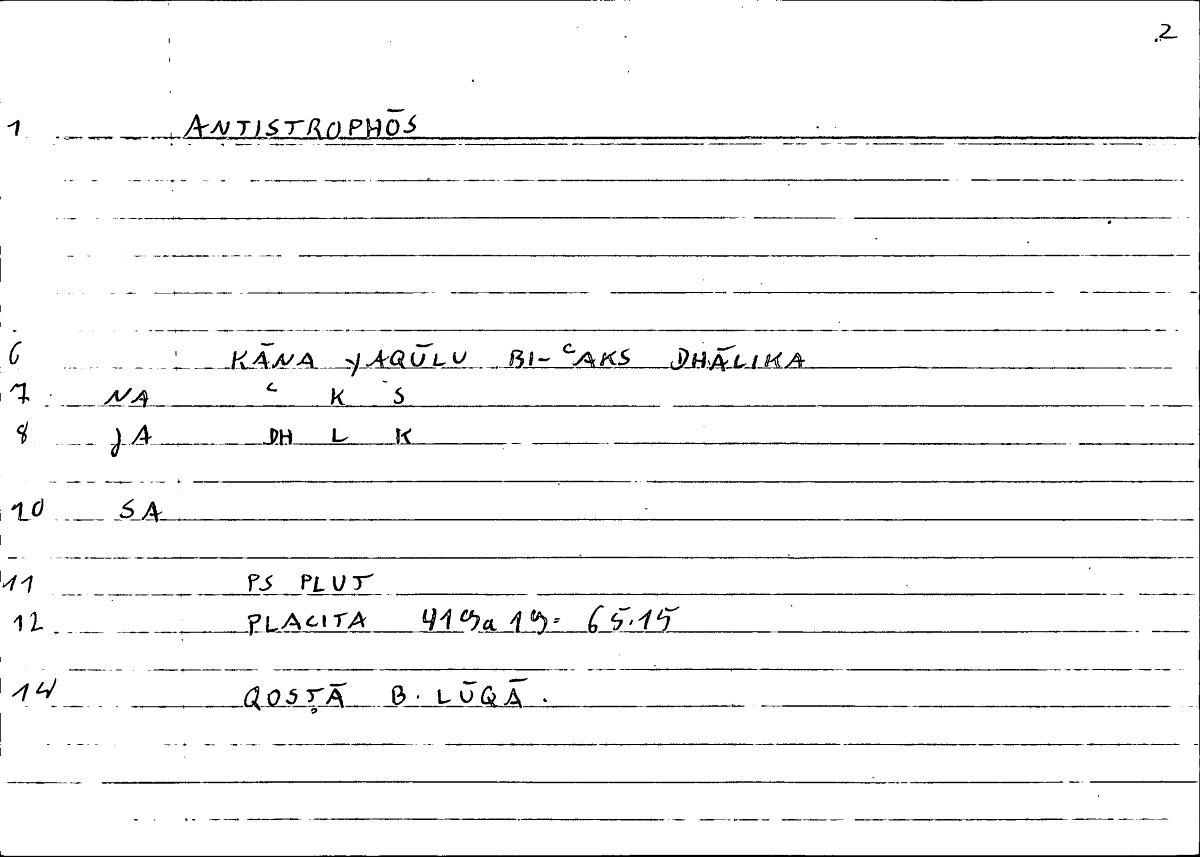 2
1 ANTISTROPHŌS
6 KĀNA YAQŪLU BI-ʿAKS DHĀLIKA
7 NA ʿ K S
8 JA DH L K
10 SA
11 PS PLUT
12 PLACITA 419a19= 65.15
14 QOSṬĀ B. LŪQĀ.